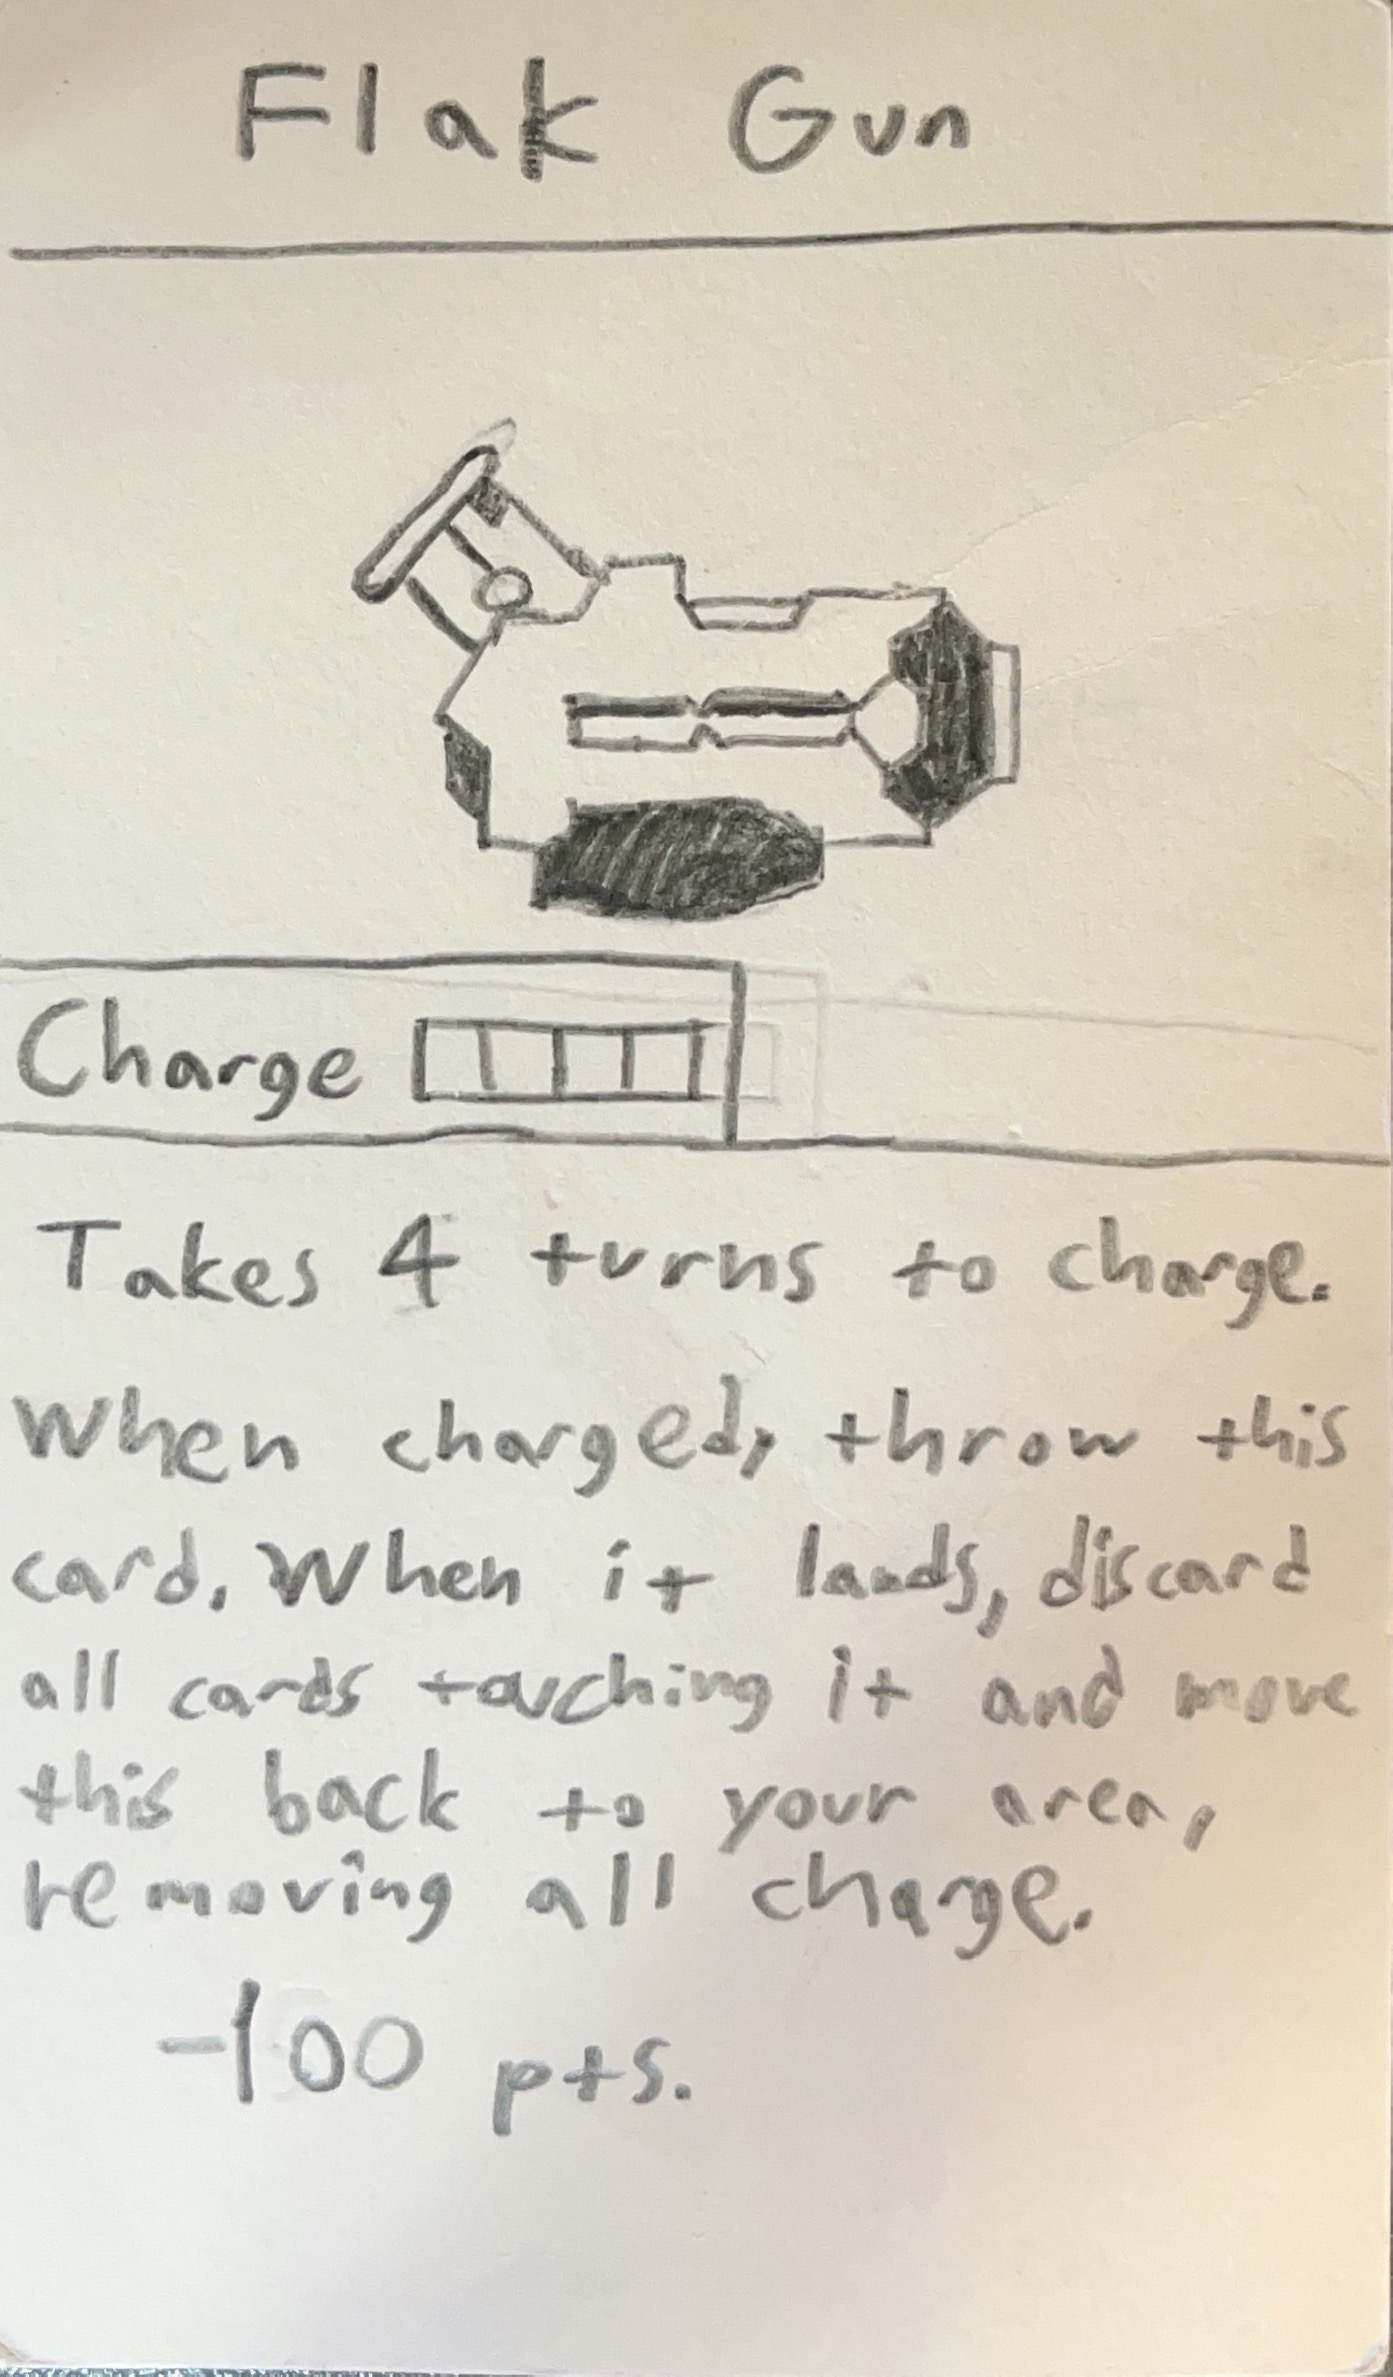 Flak Gun
Charge
Takes 4 turns to charge.
When charged, throw this
card. When it lands, discard
all cards touching it and move
this back to your area,
removing all charge.
-100 pts.